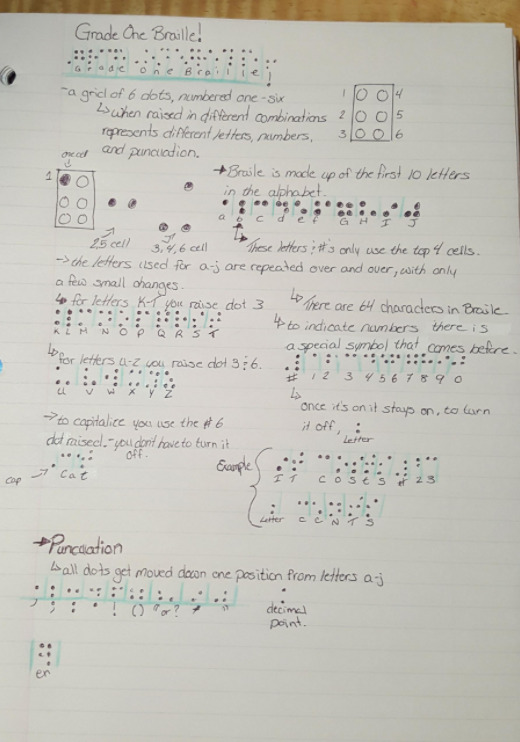 Grade One Braille!
Grade One Braille!
-a grid of 6 dots, numbered one-six
↳when raised in different combinations
represents different letters, numbers,
and puncuation.
1 4
2 5
3 6
one cell
1
2,5 cell
3,4,6 cell
→Braile is made up of the first 10 letters
in the alphabet.
a b c d e f G H I J
↳These letters & #'s only use the top 4 cells.
→the letters used for a-j are repeated over and over, with only
a few small changes.
↳ for letters K-T you raise dot 3
K L M N O P Q R S T
↳for letters u-z you raise dot 3 & 6.
U V W X Y Z
→to capitalice you use the #6
dot raised.-you dont have to turn it
off.
cap → Cat
↳There are 64 characters in Braile
↳to indicate numbers there is
a special symbol that comes before.
# 1 2 3 4 5 6 7 8 9 0
↳
once it's on it stays on, to turn
it off,
Letter
Example
I T C O S t S # 23
Letter C E N T S
→Puncuation
↳all dots get moved down one position from letters a-j
, ; : . ! () "or? * "
decimal
point.
er